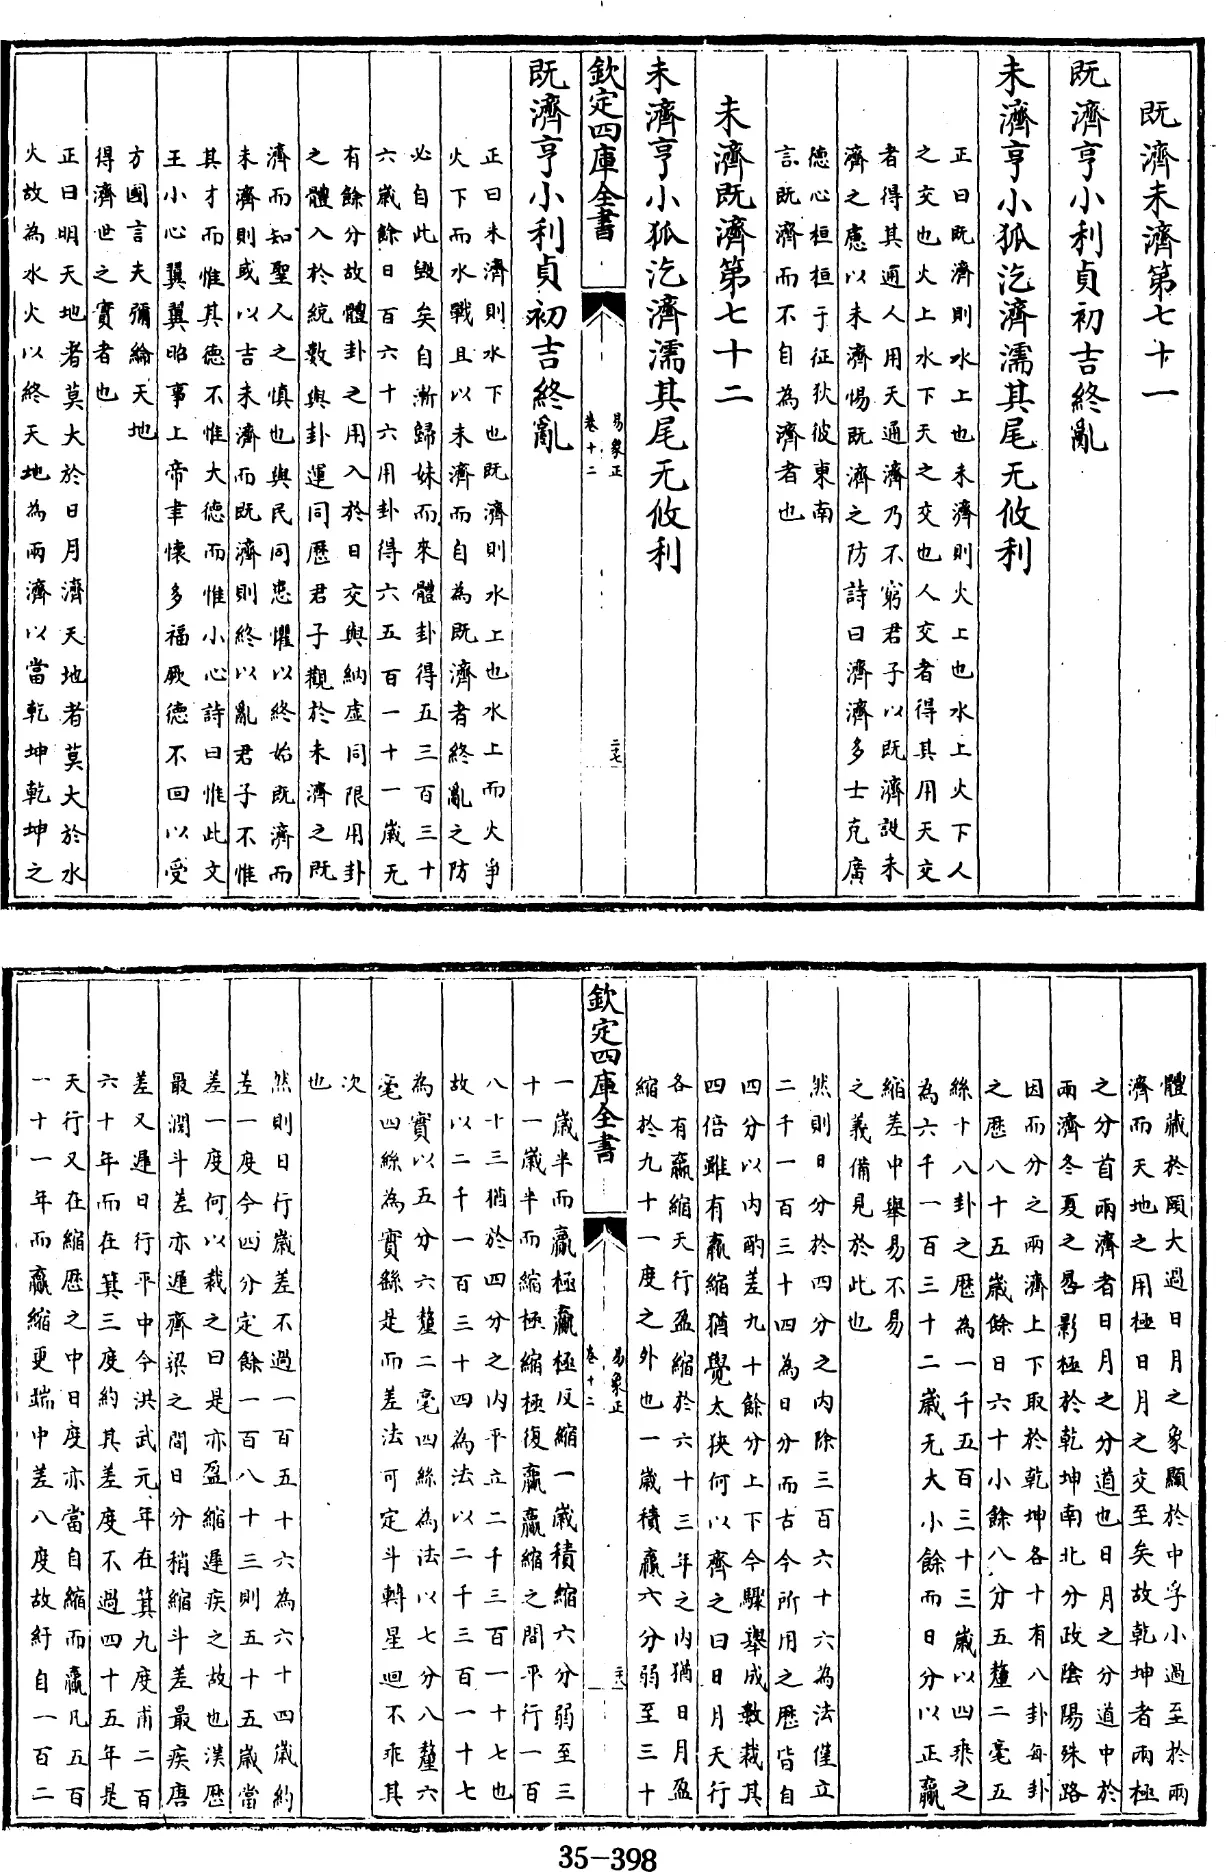 既濟未濟第七十一
既濟亨小利貞初吉終亂
未濟亨小狐汔濟濡其尾无攸利
正曰既濟則水上也未濟則火上也水上火下人
之交也火上水下天之交也人交者得其用天交
者得其通人用天通濟乃不窮君子以既濟設未
濟之慮以未濟惕既濟之防詩曰濟濟多士克廣
德心桓桓于征狄彼東南
言既濟而不自為濟者也
未濟既濟第七十二
未濟亨小狐汔濟濡其尾无攸利
欽定四庫全書
易象正
卷十二
二七
既濟亨小利貞初吉終亂
正曰未濟則水下也既濟則水上也水上而火爭
火下而水戰且以未濟而自為既濟者終亂之防
必自此毀矣自漸歸妹而來體卦得五三百三十
六歲餘日百六十六用卦得六五百一十一歲无
有餘分故體卦之用入於日交與納虛同限用卦
之體入於統數與卦運同歷君子觀於未濟之既
濟而知聖人之慎也與民同患懼以終始既濟而
未濟則或以吉未濟而既濟則終以亂君子不惟
其才而惟其德不惟大德而惟小心詩曰惟此文
王小心翼翼昭事上帝聿懷多福厥德不回以受
方國言夫彌綸天地
得濟世之實者也
正曰明天地者莫大於日月濟天地者莫大於水
火故為水火以終天地為兩濟以當乾坤乾坤之
體藏於頤大過日月之象顯於中孚小過至於兩
濟而天地之用極日月之交至矣故乾坤者兩極
之分首兩濟者日月之分道也日月之分道中於
兩濟冬夏之晷影極於乾坤南北分政陰陽殊路
因而分之兩濟上下取於乾坤各十有八卦每卦
之歷八十五歲餘日六十小餘八分五釐二毫五
絲十八卦之歷為一千五百三十三歲以四乘之
為六千一百三十二歲无大小餘而日分以正贏
縮差中舉易不易
之義備見於此也
然則日分於四分之內除三百六十六為法僅立
二千一百三十四為日分而古今所用之歷皆自
四分以內酌差九十餘分上下今驟舉成數裁其
四倍雖有贏縮猶覺太狹何以齊之曰日月天行
各有贏縮天行盈縮於六十三年之內猶日月盈
縮於九十一度之外也一歲積贏六分弱至三十
欽定四庫全書
易象正
卷十二
二八
一歲半而贏極贏極反縮一歲積縮六分弱至三
十一歲半而縮極縮極復贏贏縮之間平行一百
八十三猶於四分之內平立二千三百一十七也
故以二千一百三十四為法以二千三百一十七
為實以五分六釐二毫四絲為法以七分八釐六
毫四絲為實繇是而差法可定斗轉星迴不乖其
次
也
然則日行歲差不過一百五十六為六十四歲約
差一度今四分定餘一百八十三則五十五歲當
差一度何以裁之曰是亦盈縮遲疾之故也漢歷
最濶斗差亦遲齊梁之間日分稍縮斗差最疾唐
差又遲日行平中今洪武元年在箕九度甫二百
六十年而在箕三度約其差度不過四十五年是
天行又在縮歷之中日度亦當自縮而贏凡五百
一十一年而贏縮更端中差八度故紆自一百二
35-398